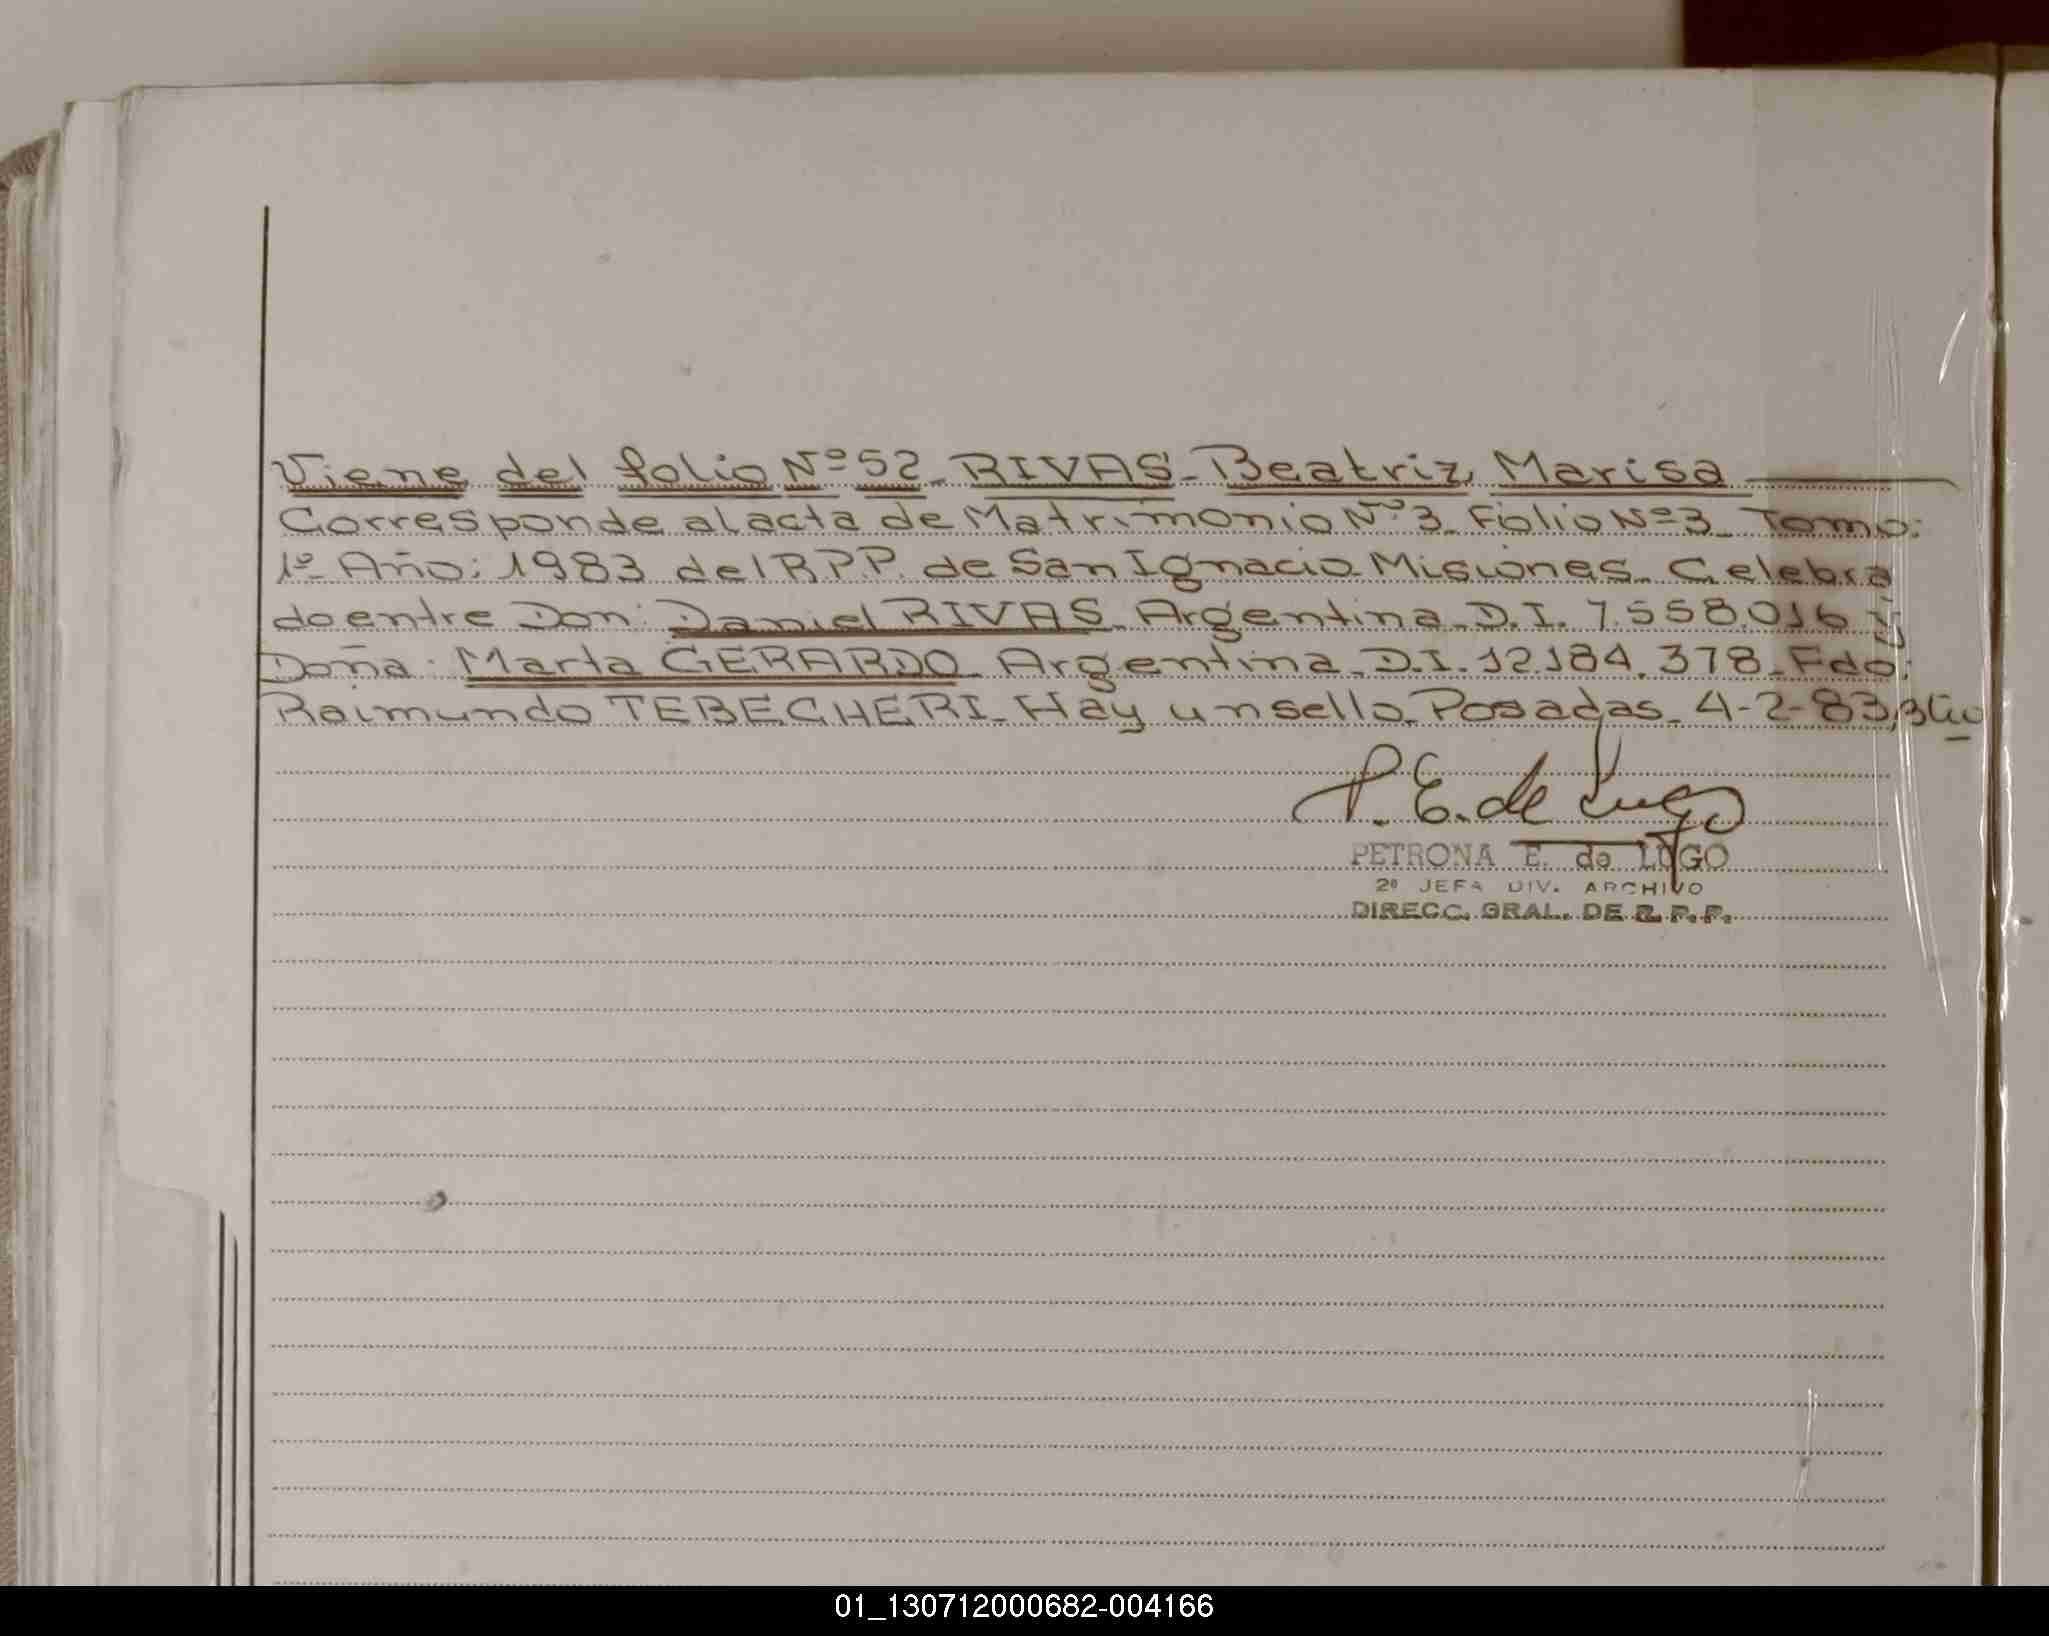 Viene del folio Nº 52_ RIVAS_ Beatriz Marisa
Corresponde al acta de Matrimonio Nº 3_ Folio Nº 3_ Tomo:
1º_ Año: 1983 del R.P.P. de San Ignacio_ Misiones_ Celebra
do entre Don: Daniel RIVAS_ Argentina_ D.I. 7.558.016 y
Doña: Marta GERARDO_ Argentina_ D.I. 12.184.378_ Fdo:
Raimundo TEBECHERI_ Hay un sello_ Posadas_ 4-2-83
P. E. de Lugo
PETRONA E. de LUGO
2º JEFA DIV. ARCHIVO
DIRECC. GRAL. DE R. P. P.
01_130712000682-004166